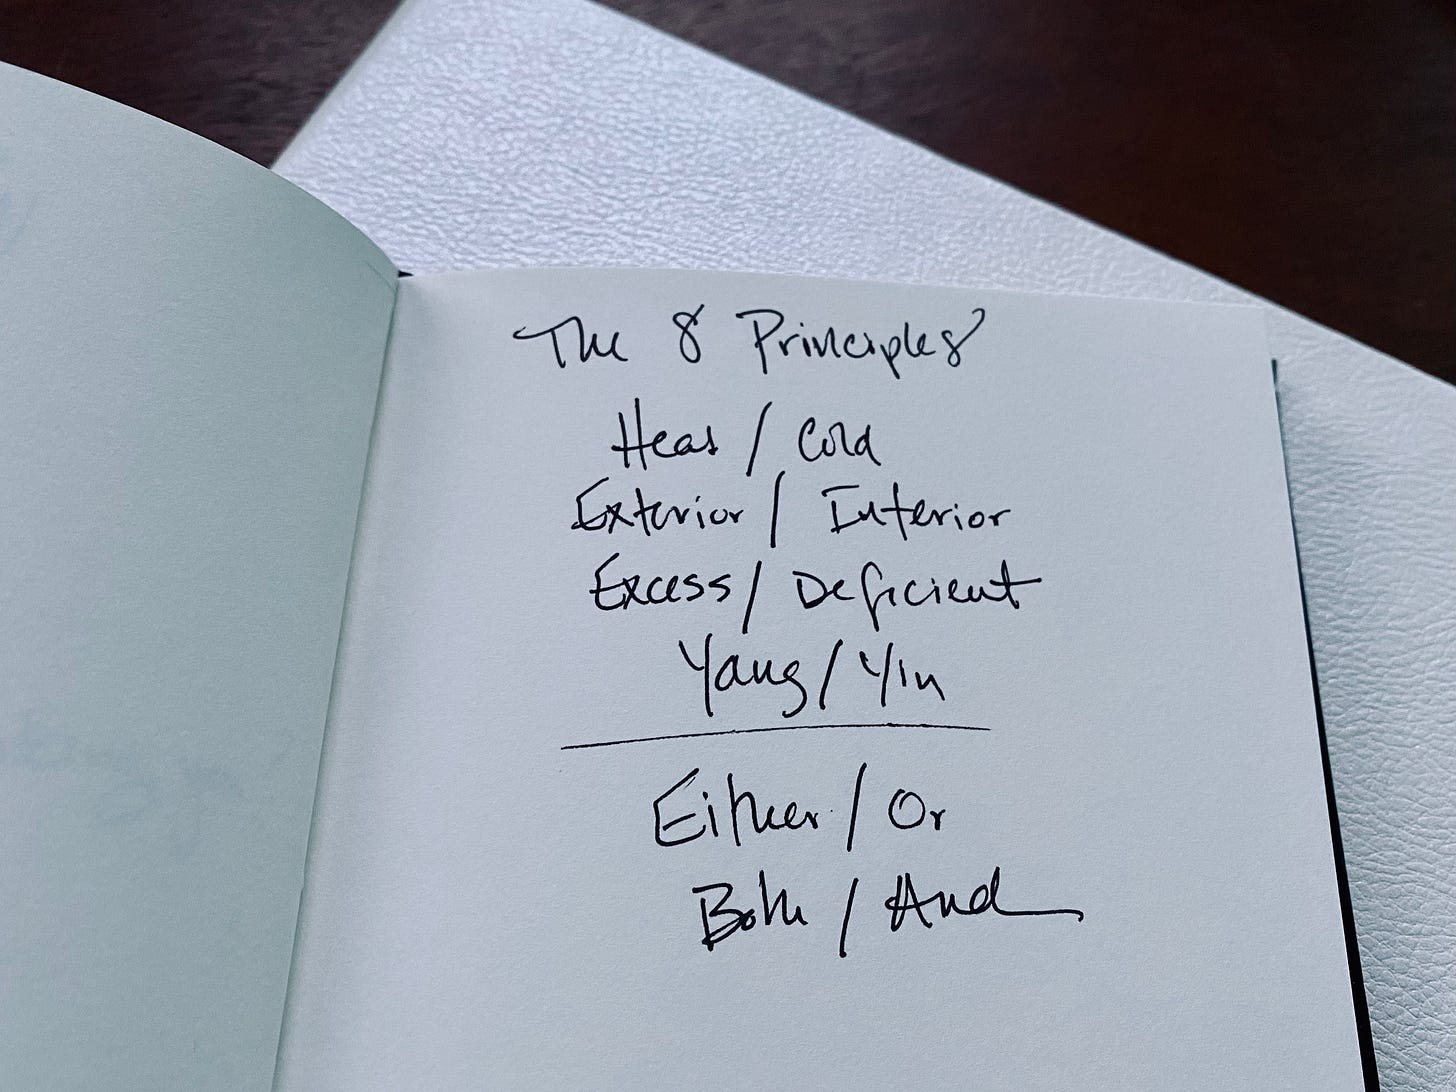 The 8 Principles
Heat / Cold
Exterior / Interior
Excess / Deficient
Yang / Yin
Either / Or
Both / And